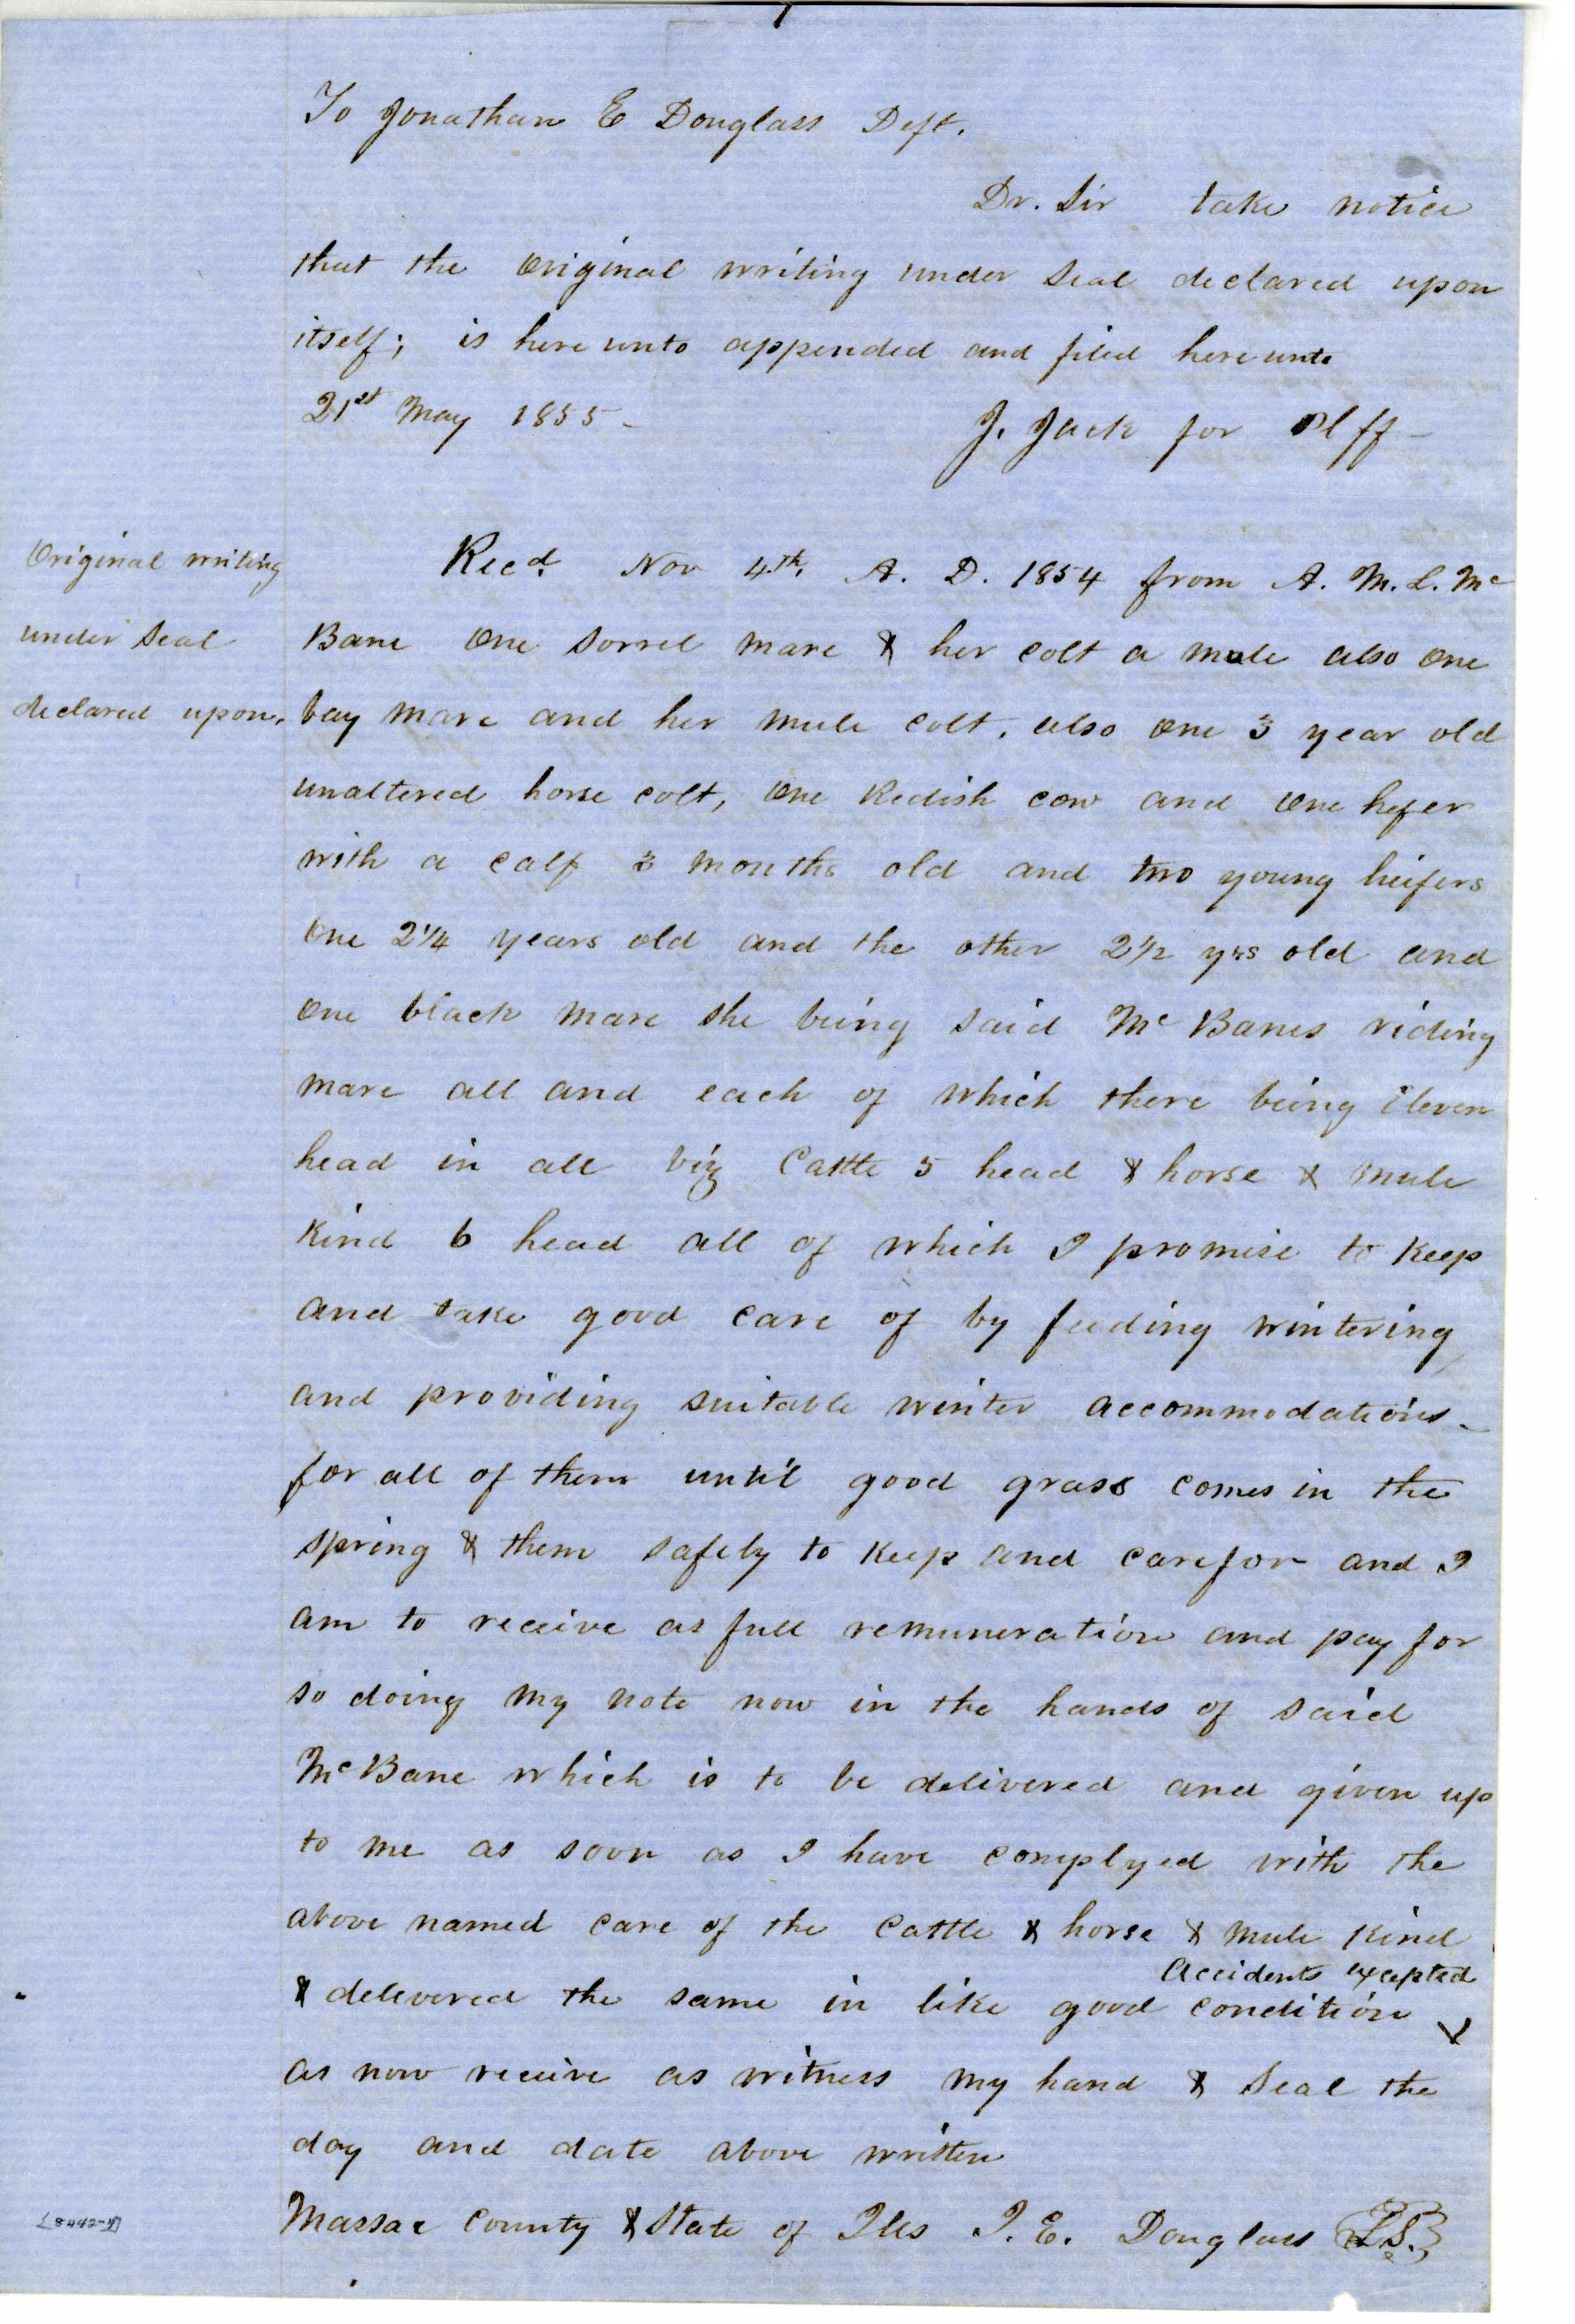 To Jonathan E Douglass Deft.
Dr. Sir take notice
that the original writing under seal declared upon
itself; is here unto appended and filed here unto
21st May 1855 -
J. Jack for Plff -
Original writing
under seal
declared upon.
Recd. Nov 4th. A. D. 1854 from A. M. L. Mc
Bane one sorrel mare & her colt a mule also one
bay mare and her mule colt, also one 3 year old
unaltered horse colt, one Redish cow and one hefer
with a calf 3 months old and two young heifers
one 2 1/4 years old and the other 2 1/2 yrs old and
one black mare she being said Mc Banes riding
mare all and each of which there being Eleven
head in all viz Cattle 5 head & horse & mule
kind 6 head all of which I promise to keep
and take good care of by feeding wintering
and providing suitable winter accommodations
for all of them until good grass comes in the
spring & them safely to keep and care for and I
am to receive as full remuneration and pay for
so doing my note now in the hands of said
McBane which is to be delivered and given up
to me as soon as I have complyed with the
above named care of the cattle & horse & mule kind
Accidents excepted
& delivered the same in like good condition
as now receive as witness my hand & seal the
day and date above written
Massac County & State of Ills J. E. Douglass L.S.